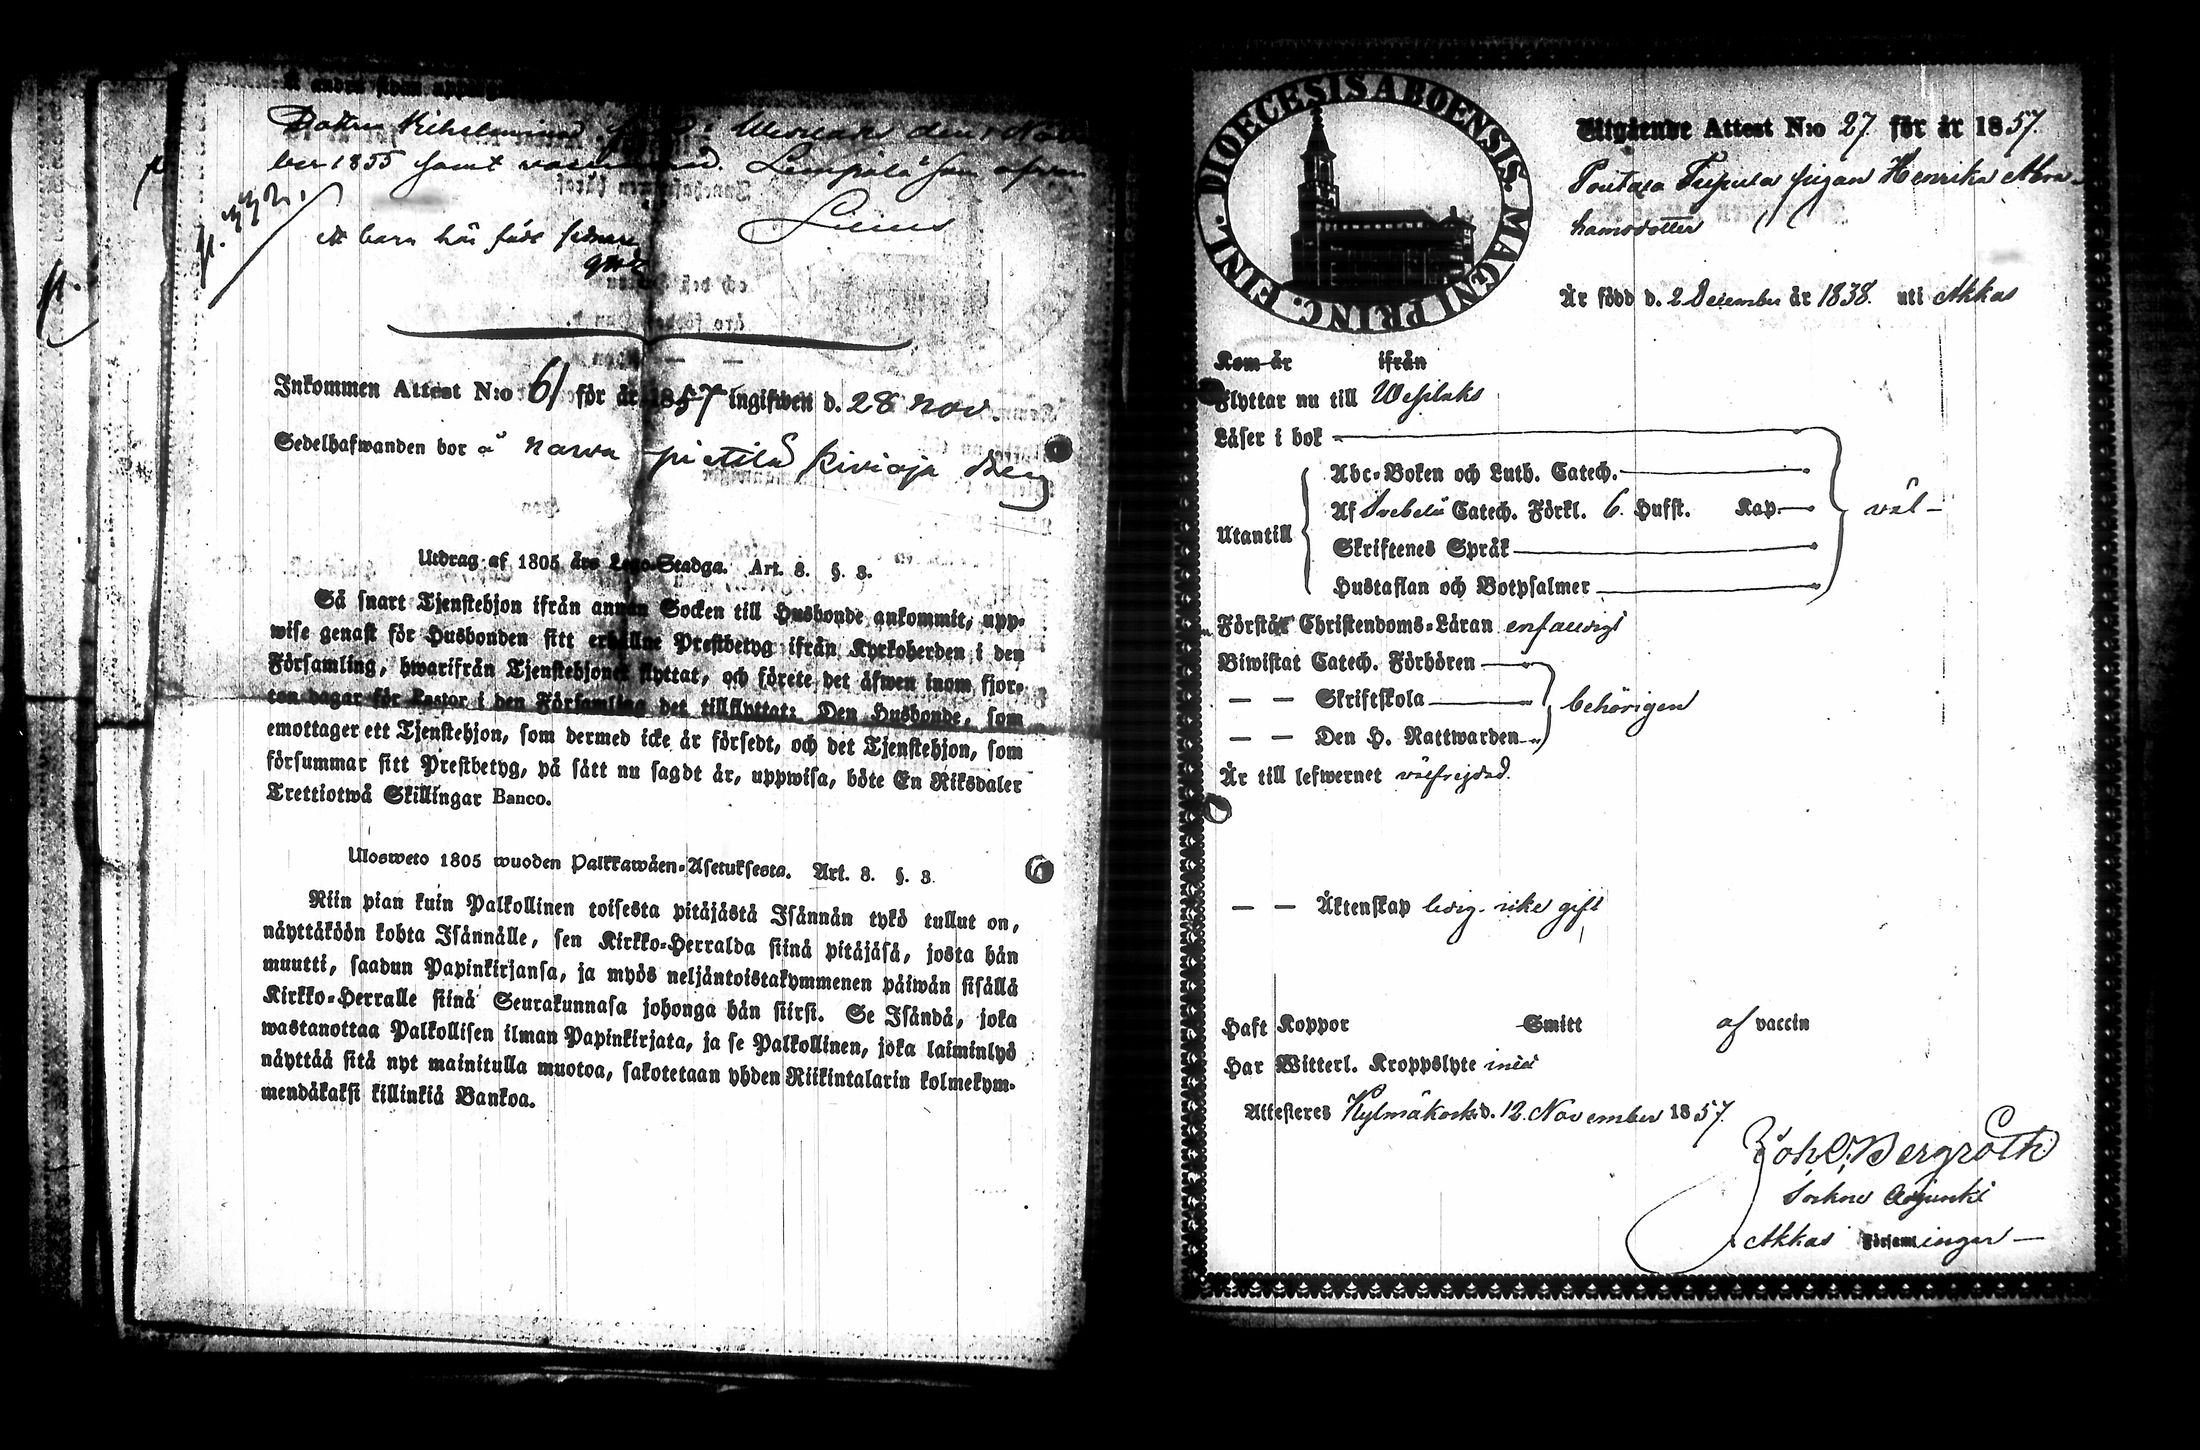 Å andra sidan
Dottren Wilhelmina född i Wesilaks den 1 Novem
ber 1855 samt vaccinerad. Lempälä som ofvan
Limus
N. 332.
ett barn här födt sednare
Inkommen Attest N:o 61 för år 1857 ingifwen d. 28 nov.
Sedelhafwanden bor å narva pietilä kivioja
Utdrag af 1805 års Lego-Stadga. Art. 8. §. 3.
Så snart Tjenstehjon ifrån annan Socken till Husbonde ankommit, upp-
wise genast för Husbonden sitt erhållne Prestbetyg ifrån Kyrkoherden i den
Församling, hwarifrån Tjenstehjonet flyttat, och förete det äfwen inom fjor-
ton dagar för Pastor i den Församling det tillflyttat: Den Husbonde, som
emottager ett Tjenstehjon, som dermed icke är försedt, och det Tjenstehjon, som
försummar sitt Prestbetyg, på sätt nu sagdt är, uppwisa, böte En Riksdaler
Trettiotwå Skillingar Banco.
Ulosweto 1805 wuoden Palkkawäen-Asetuksesta. Art. 8. §. 3.
Niin pian kuin Palkollinen toisesta pitäjästä Isännän tykö tullut on,
näyttäköön kohta Isännälle, sen Kirkko-Herralda siinä pitäjäsä, josta hän
muutti, saadun Papinkirjansa, ja myös neljäntoistakymmenen päiwän sisällä
Kirkko-Herralle siinä Seurakunnasa johonga hän siirsi. Se Isändä, joka
wastanottaa Palkollisen ilman Papinkirjata, ja se Palkollinen, joka laiminlyö
näyttää sitä nyt mainitulla muotoa, sakotetaan yhden Riikintalarin kolmekym-
mendäkaksi killinkiä Bankoa.
FINL. DIOECESIS ABOENSIS. MAGNI PRINC.
Utgående Attest N:o 27. för år 1857.
Pontala Tupula pigan Henrika Abra-
hamsdotter
Är född d. 2 December år 1838. uti Akkas
Kom år ifrån
Flyttar nu till Wesilaks
Läser i bok
Abc-Boken och Luth. Catech.
Af Svebelii Catech. Förkl. 6. Hufst. Kap. väl
Utantill
Skriftenes Språk
Hustaflan och Botpsalmer
Förstår Christendoms-Läran enfaldigt
Biwistat Catech. Förhören
— — Skriftskola behörigen
— — Den H. Nattwarden
Är till lefwernet välfrejdad.
— — Äktenskap ledig. icke gift
Haft Koppor Smitt af vaccin
Har Witterl. Kroppslyte intet
Attesteras Kylmäkoski d. 12. November 1857.
Joh. O. Bergroth
Sockne Adjunkt
Akkas Församlingar